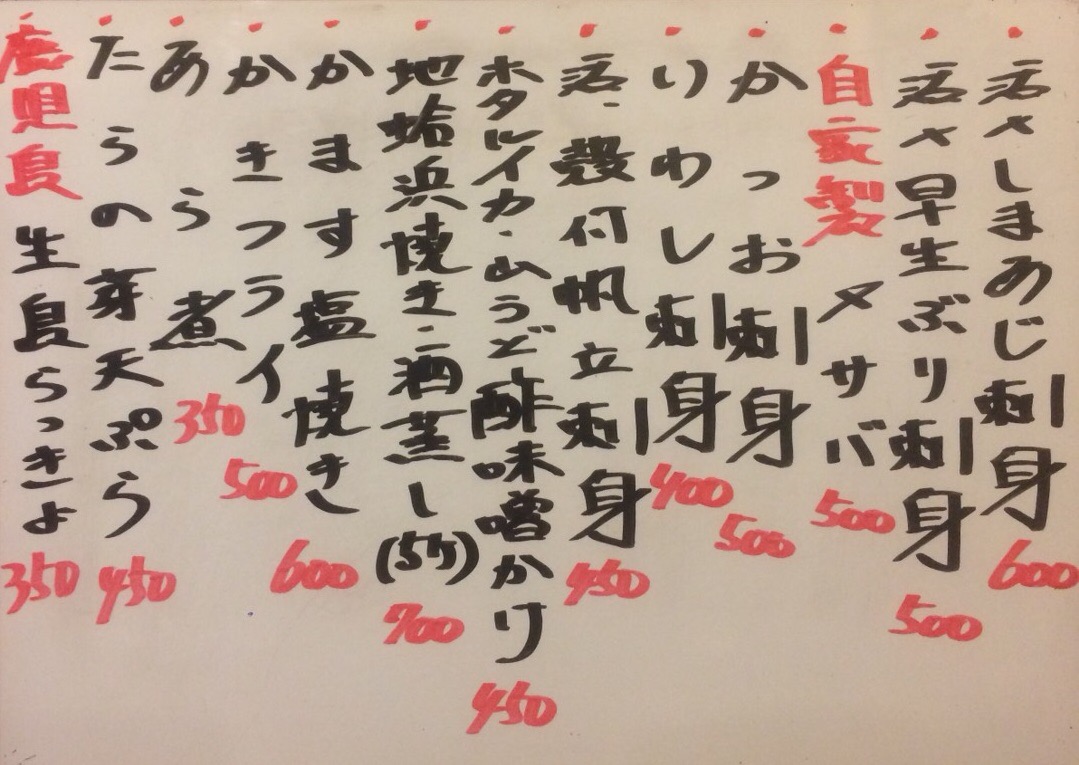 ・活〆しまあじ刺身 600
・活〆早生ぶり刺身 500
自家製 〆サバ 500
・かつお刺身 500
・いわし刺身 400
・活・殻付帆立刺身 450
・ホタルイカ・山うど酢味噌かけ 450
・地蛤浜焼き・酒蒸し(5ケ) 700
・かます塩焼き 600
・かきフライ 500
・あら煮 350
・たらの芽天ぷら 450
・鹿児島 生島らっきょ 350